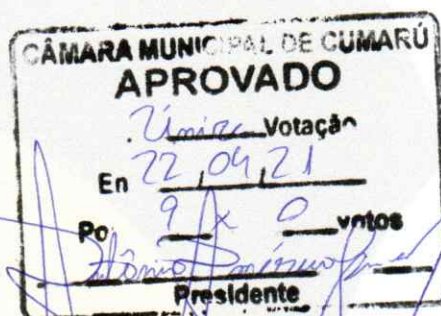 CÂMARA MUNICIPAL DE CUMARÚ
APROVADO
Única Votação
En 22, 04, 21
Po 9 x 0 votos
Antônio
Presidente